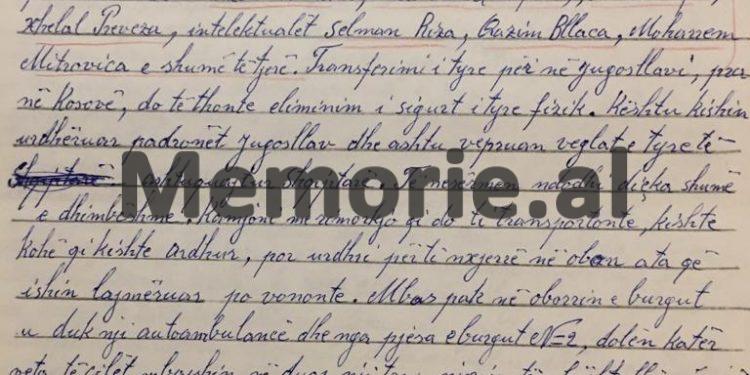 xhelal Preveza, intelektualët Selman Riza, Gazim Bllaca, Moharrem
Mitrovica e shumë të tjerë. Transferimi i tyre për në Jugosllavi, pra
në Kosovë, do të thonte eliminim i sigurt i tyre fizik. Kështu kishin
urdhëruar padronët jugosllav dhe ashtu vepruan veglat e tyre të-
ashtuquajtur shqiptarë. Të nesërmen ndodhi diçka shumë
e dhimbëshme. Kamjoni me rimorkjo qi do ti transportonte, kishte
kohë qi kishte ardhur, por urdhri për ti nxjerrë në oborr ata që
ishin lajmëruar po vononte. Mbas pak në oborrin e burgut
u duk nji autoambulancë dhe nga pjesa e burgut №=2, dolën katër
veta të cilët mbanin në duar nji
Memorie.al